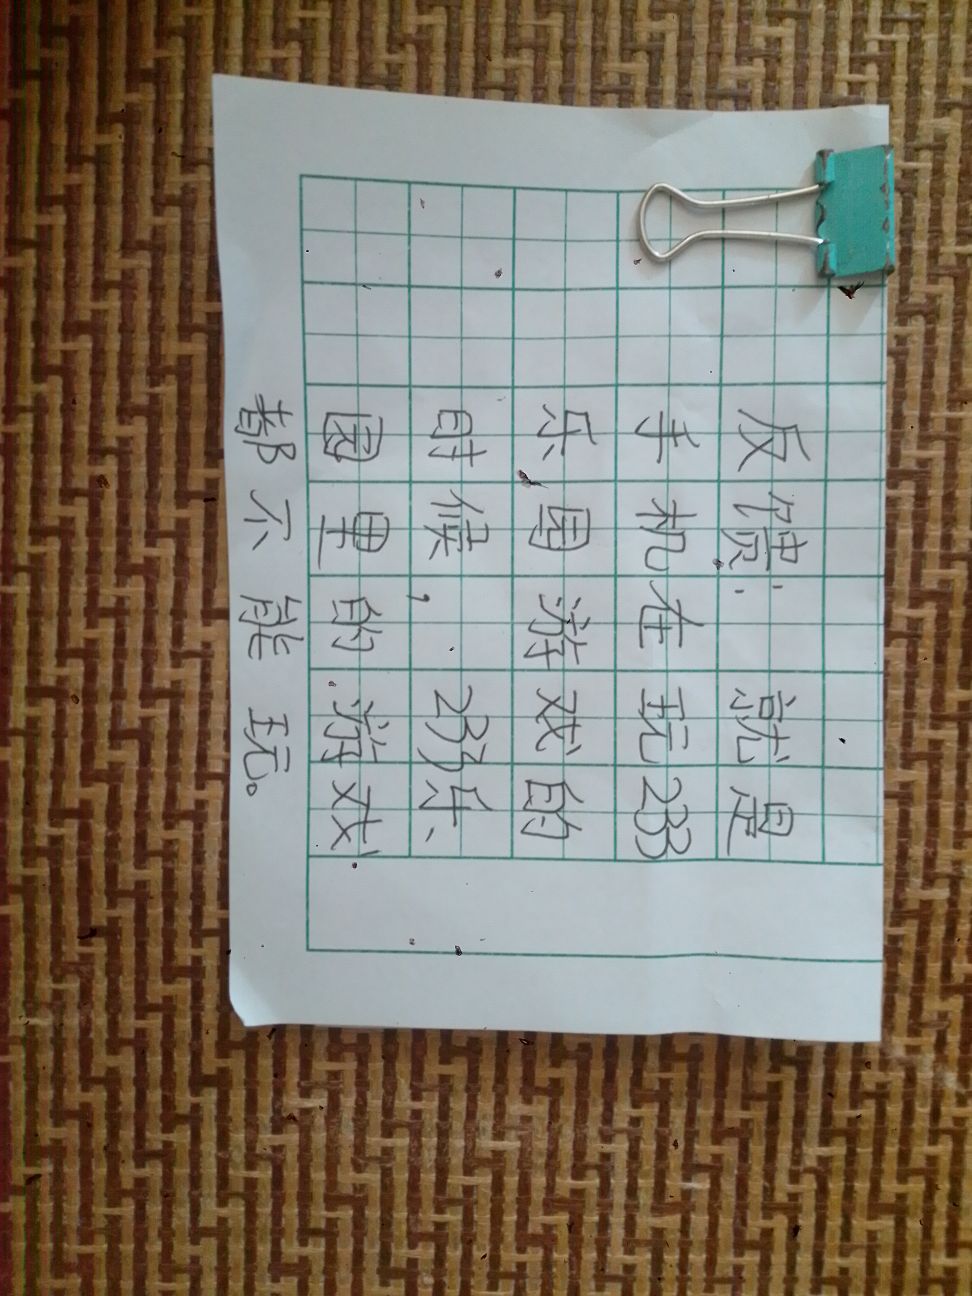 反馈：就是
手机在玩233
乐园游戏的
时候，233乐
园里的游戏
都不能玩。